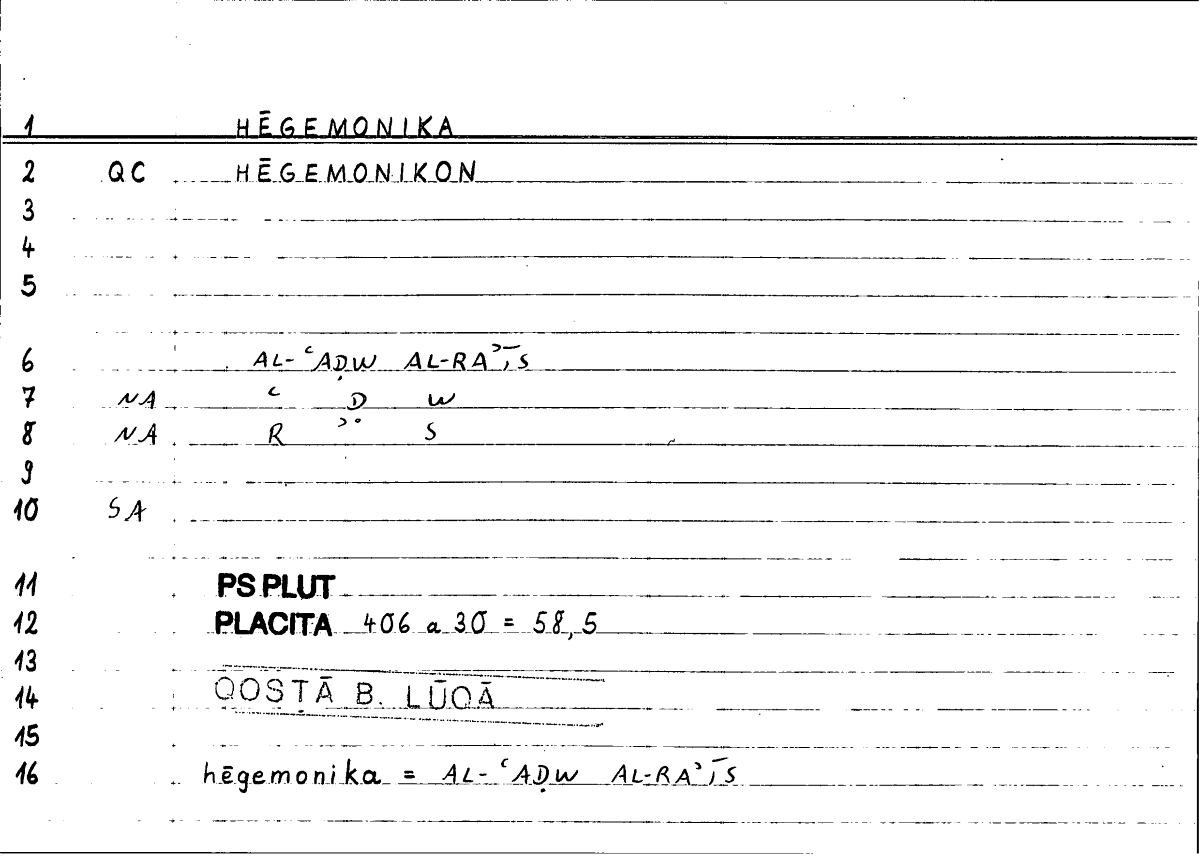 1 HĒGEMONIKA
2 QC HĒGEMONIKON
3
4
5
6 AL-ʿAḌW AL-RAʾĪS
7 NA ʿ Ḍ W
8 NA R ʾ S
9
10 SA
11 PS PLUT
12 PLACITA 406 a 30 = 58,5
13
14 QOSṬĀ B. LŪQĀ
15
16 hēgemonika = AL-ʿAḌW AL-RAʾĪS